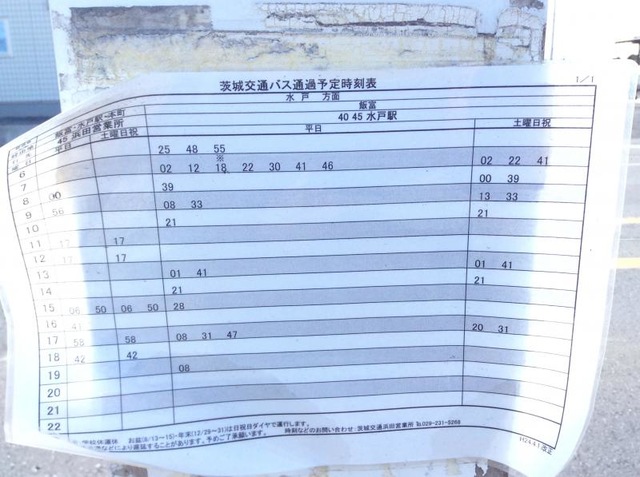 茨城交通バス通過予定時刻表
1/1
水戸 方面
飯富・水戸駅・本町
飯富
45 浜田営業所
40 45 水戸駅
平日 土曜日祝 平日 土曜日祝
6 25 48 55
※
7 02 12 18 22 30 41 46 02 22 41
8 00 39 00 39
9 56 08 33 13 33
10 21 21
11 17 17
12 17 17
13 01 41 01 41
14 21 21
15 06 50 06 50 28
16 41
17 58 58 08 31 47 20 31
18 42 42
19 08
20
21
22
学校休運休 お盆(8/13～15)・年末(12/29～31)は日祝日ダイヤで運行します。
などにより遅延することがあります。予めご了承願います。 時刻などのお問い合わせ：茨城交通浜田営業所 ℡029-231-5268
H24.4.1改正